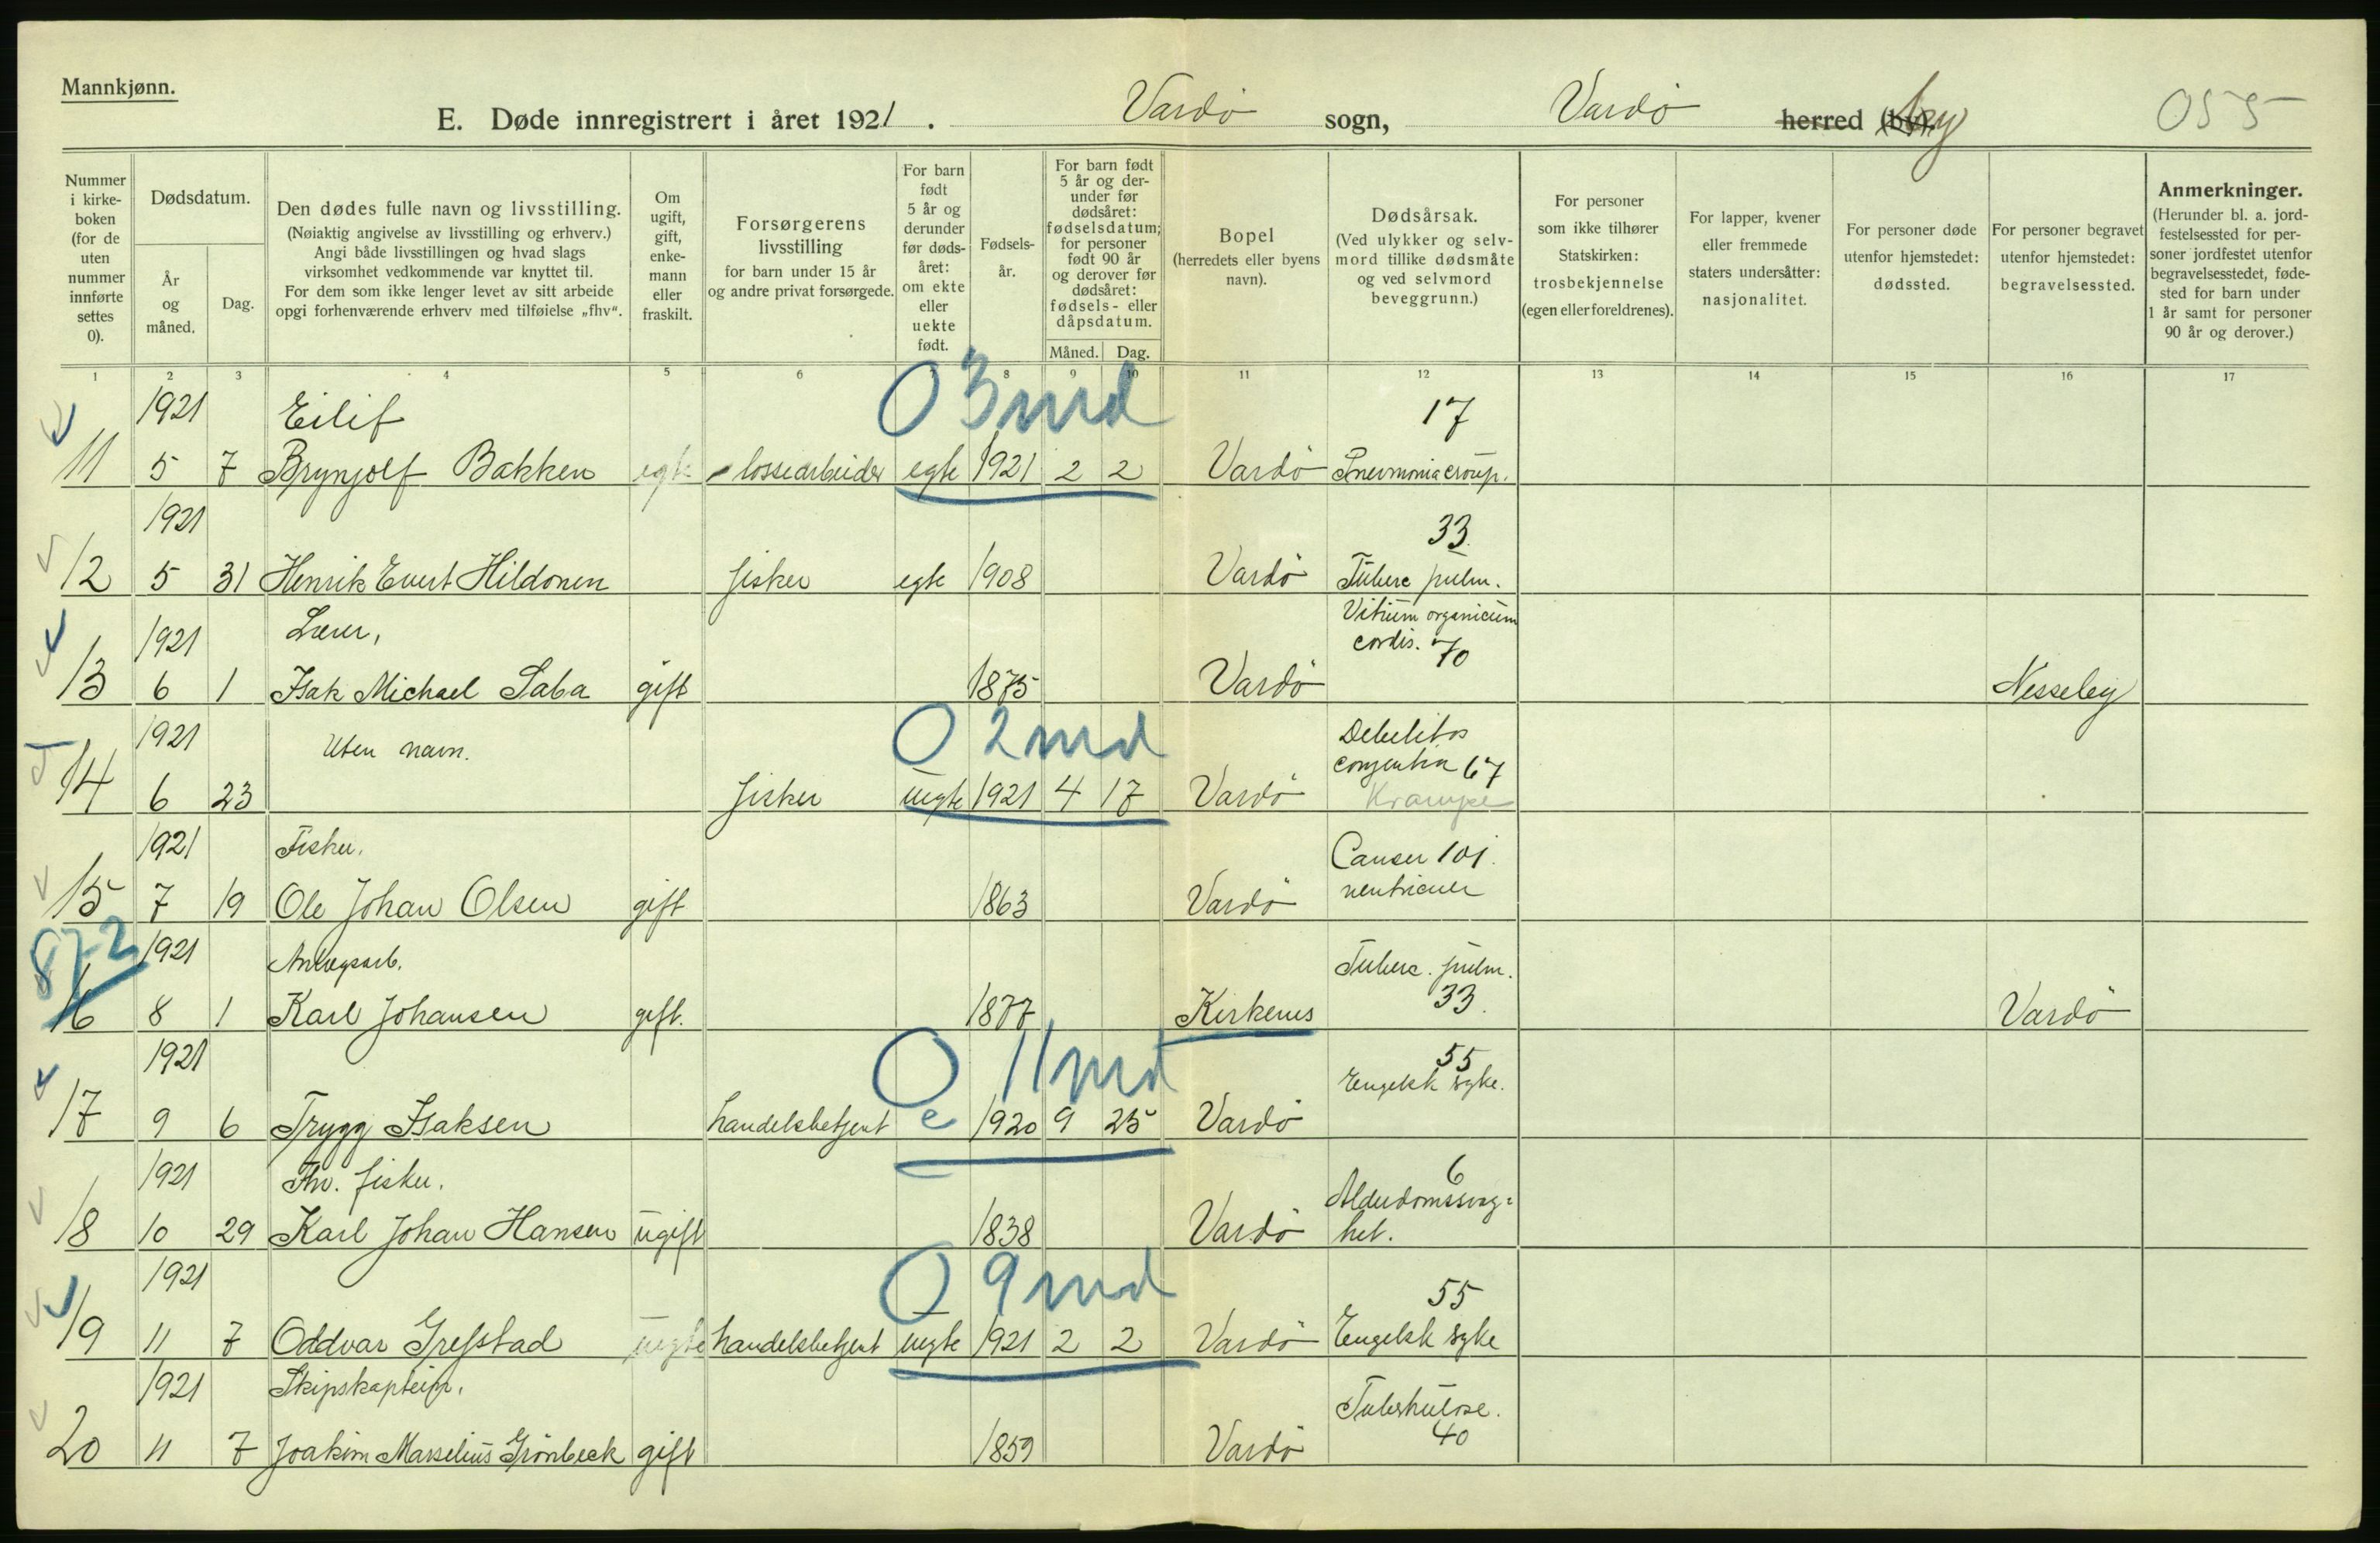 Mannkjønn.
E. Døde innregistrert i året 1921. Vardö sogn, Vardö herred (by). by 055
Nummer i kirke- boken (for de uten nummer innførte settes 0).
Dødsdatum.
År og måned.
Dag.
Den dødes fulle navn og livsstilling.
(Nøiaktig angivelse av livsstilling og erhverv.)
Angi både livsstillingen og hvad slags
virksomhet vedkommende var knyttet til.
For dem som ikke lenger levet av sitt arbeide
opgi forhenværende erhverv med tilføielse „fhv“.
Om ugift, gift, enke- mann eller fraskilt.
Forsørgerens livsstilling for barn under 15 år og andre privat forsørgede.
For barn født 5 år og derunder før døds- året: om ekte eller uekte født.
Fødsels- år.
For barn født 5 år og der- under før dødsåret: fødselsdatum; for personer født 90 år og derover før dødsåret: fødsels- eller dåpsdatum.
Måned. Dag.
Bopel (herredets eller byens navn).
Dødsårsak. (Ved ulykker og selv- mord tillike dødsmåte og ved selvmord beveggrunn.)
For personer som ikke tilhører Statskirken: trosbekjennelse (egen eller foreldrenes).
For lapper, kvener eller fremmede staters undersåtter: nasjonalitet.
For personer døde utenfor hjemstedet: dødssted.
For personer begravet utenfor hjemstedet: begravelsessted.
Anmerkninger. (Herunder bl. a. jord- festelsessted for per- soner jordfestet utenfor begravelsesstedet, føde- sted for barn under 1 år samt for personer 90 år og derover.)
1 2 3 4 5 6 7 8 9 10 11 12 13 14 15 16 17
1921 Eilif 0 3 md 17
11 5 7 Brynjolf Bakken egte lossearbeider egte 1921 2 2 Vardö Pnevmonia croup.
1921 33.
12 5 31 Henrik Evert Hildonen fisker egte 1908 Vardö Tuberc pulm.
1921 Lærer, Vitium organicum cordis. 70
13 6 1 Isak Michael Saba gift 1875 Vardö Nesseby
1921 Uten navn. 0 2 md Debilitas congenita 67
14 6 23 fisker uegte 1921 4 17 Vardö Krampe
1921 Fisker. Cancer 101.
15 7 19 Ole Johan Olsen gift 1863 Vardö ventriculi
872 1921 Anlægsarb. Tuberc. pulm.
16 8 1 Karl Johansen gift. 1877 Kirkenes 33. Vardö
1921 0 11 md 55 Engelsk syke.
17 9 6 Trygg Isaksen handelsbetjent e 1920 9 25 Vardö
1921 Fhv. fisker. 6 Alderdomssvag=
18 10 29 Karl Johan Hansen ugift 1838 Vardö het.
1921 0 9 md 55
19 11 7 Oddvar Grefstad uegte handelsbetjent uegte 1921 2 2 Vardö Engelsk syke
1921 Skipskaptein. Tuberkulose.
20 11 7 Joakim Marselius Grönbeck gift 1859 Vardö 40